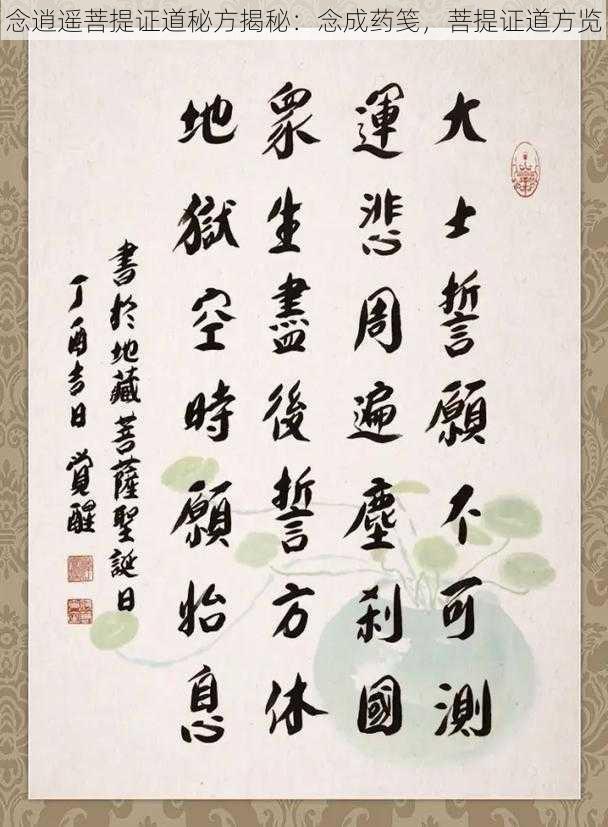 念逍遥菩提证道秘方揭秘：念成药笺，菩提证道方览
大士誓願不可測
運悲周遍塵刹國
衆生盡後誓方休
地獄空時願始息
書於地藏菩薩聖誕日
丁酉吉日 覺醒